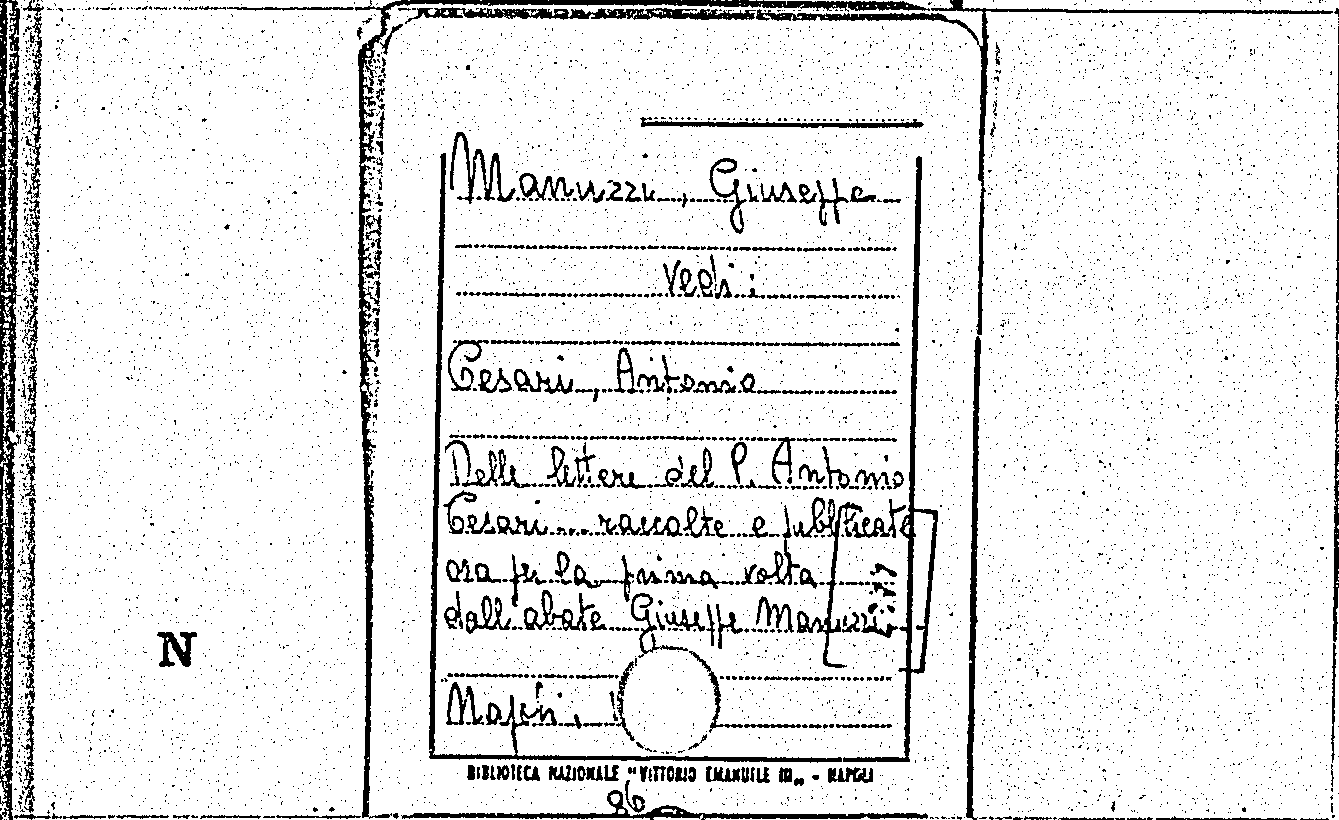 Manuzzi, Giuseppe
Vedi:
Cesari, Antonio
Delle lettere del P. Antonio
Cesari... raccolte e pubblicate
ora per la prima volta
dall'abate Giuseppe Manuzzi
N
Napoli,
BIBLIOTECA NAZIONALE "VITTORIO EMANUELE III„ - NAPOLI
86